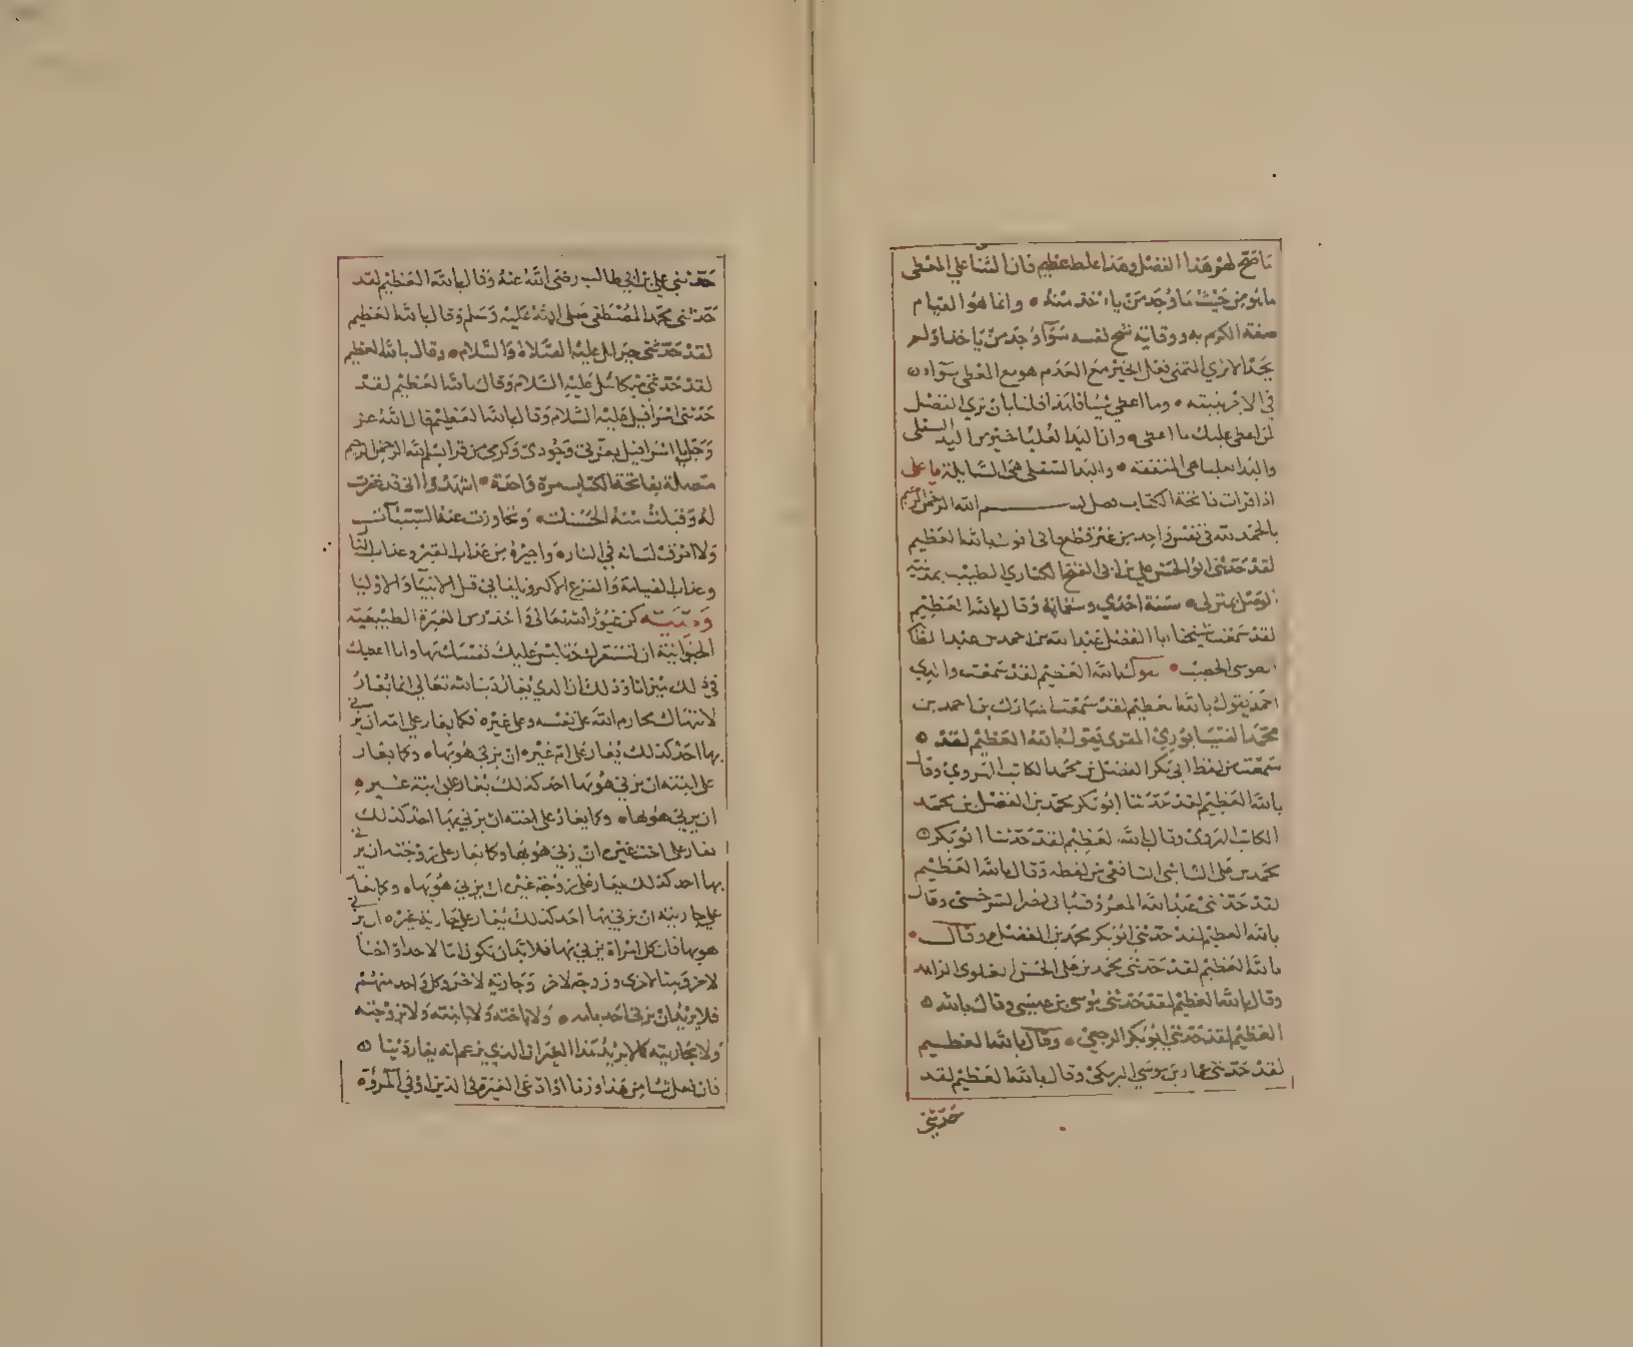 ما صح لهم هذا الفضل وهذا غلط عظيم فان الثنا على المعطى
ما هو من حيث ما وجد من ياخذ منه وانما هو القيام
صفة الكرم به ووقاية شح نفسه سوآ وجد من ياخذ او لم
يجد الا ترى المتمنى فعل الخير مع العدم هو مع المعطى سوآ
في الاجر بنيته وما اعطى شيا فلهذا قلنا بان يرى الفضل
لمن اعطى عليك ما اعطى وان اليد العليا خير من اليد السفلى
واليد العليا هى المنفقة واليد السفلى هى السايلة يا على
اذا قرات فاتحة الكتاب فصل بسم الله الرحمن الرحيم
بالحمد لله في نفس واحد من غير قطع فانى اقول بالله العظيم
لقد حدثنى ابو الحسن على بن ابى الفتح الكنارى الطبيب بمدينة
الموصل بمنزلى سنة احدى وستمائة وقال بالله العظيم
لقد سمعت شيخنا ابا الفضل عبد الله بن احمد بن عبد القا
الطوسى الخطيب يقول بالله العظيم لقد سمعت والدى
احمد يقول بالله العظيم لقد سمعت المبارك بن احمد بن
محمد النيسابورى المقرى يقول بالله العظيم لقد
سمعت من لفظ ابى بكر الفضل بن محمد الكاتب الهروى وقال
بالله العظيم لقد حدثنا ابو بكر محمد بن الفضل بن محمد
الكاتب الهروى وقال بالله العظيم لقد حدثنا ابو بكر
محمد بن على الشاشى الشافعى من لفظه وقال بالله العظيم
لقد حدثنى عبد الله المعروف بابى نصر السرخسى وقال
بالله العظيم لقد حدثنى ابو بكر محمد بن الفضل وقال
بالله العظيم لقد حدثنى محمد بن على الحسن العلوى الزاهد
وقال بالله العظيم لقد حدثنى موسى بن عيسى وقال بالله
العظيم لقد حدثنى ابو بكر الرجعى وقال بالله العظيم
لقد حدثنى عمار بن موسى البرمكى وقال بالله العظيم لقد
حدثنى
حدثنى على بن ابى طالب رضى الله عنه وقال بالله العظيم لقد
حدثنى محمد المصطفى صلى الله عليه وسلم وقال بالله العظيم
لقد حدثنى جبرايل عليه الصلاة والسلام وقال بالله العظيم
لقد حدثنى ميكائيل عليه السلام وقال بالله العظيم لقد
حدثنى اسرافيل عليه السلام وقال بالله العظيم قال الله عز
وجل يا اسرافيل بعزتى وجودى وكرمى من قرا بسم الله الرحمن الرحيم
متصلة بفاتحة الكتاب مرة واحدة اشهدوا انى قد غفرت
له وقبلت منه الحسنات وتجاوزت عنه السيئات
ولا احرق لسانه في النار واجيره من عذاب القبر وعذاب النا
وعذاب القيامة والفزع الاكبر ويلقانى قبل الانبيا والاوليا
وصية كن غيورا لله تعالى واحذر من الغيرة الطبيعية
الحيوانية ان تستفزك وتلبس عليك نفسك بها وانا اعطيك
في ذلك ميزانا وذلك ان الذي يغار دينا لله تعالى انما يغار
لانتهاك محارم الله على نفسه وعلى غيره فكما يغار على امه ان يزنى
بها احد كذلك يغار على ام غيره ان يزنى هو بها وكما يغار
على ابنته ان يزنى هو بها احد كذلك يغار على ابنة غيره
ان يزنى هو بها وكما يغار على اخته ان يزنى بها احد كذلك
يغار على اخت غيره ان يزنى هو بها وكما يغار على زوجته ان يزنى
بها احد كذلك يغار على زوجة غيره ان يزنى هو بها وكما يغا
على جاريته ان يزنى بها احد كذلك يغار على جارية غيره ان يزنى
هو بها فان كل امراة يزنى بها فلا بد ان تكون اما لاحد واختا
لاخر وبنتا لاخر وزوجة لاخر وجارية لاخر وكل واحد منهم
فلا يريد ان يزنى احد بامه ولا باخته ولا بابنته ولا بزوجته
ولا بجاريته كما لا يريد هذا الغيران الذى يزعم انه يغار دينا
فان فعل شيا من هذا وزنا وادعى الغيرة في الدين او في المروة